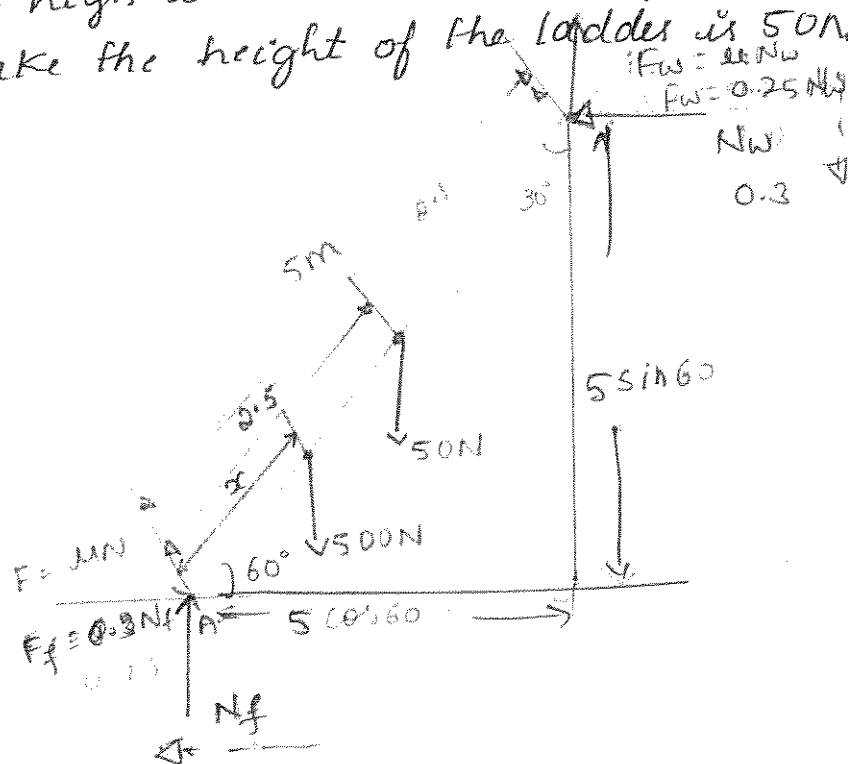 ake the height of the ladder is 50N.
Fw = µNw
Fw = 0.25 Nw
Nw
0.3
30°
5m
2.5
x
50N
500N
5 sin 60
F = µN
60°
Ff = 0.3 Nf
A
5 cos 60
Nf